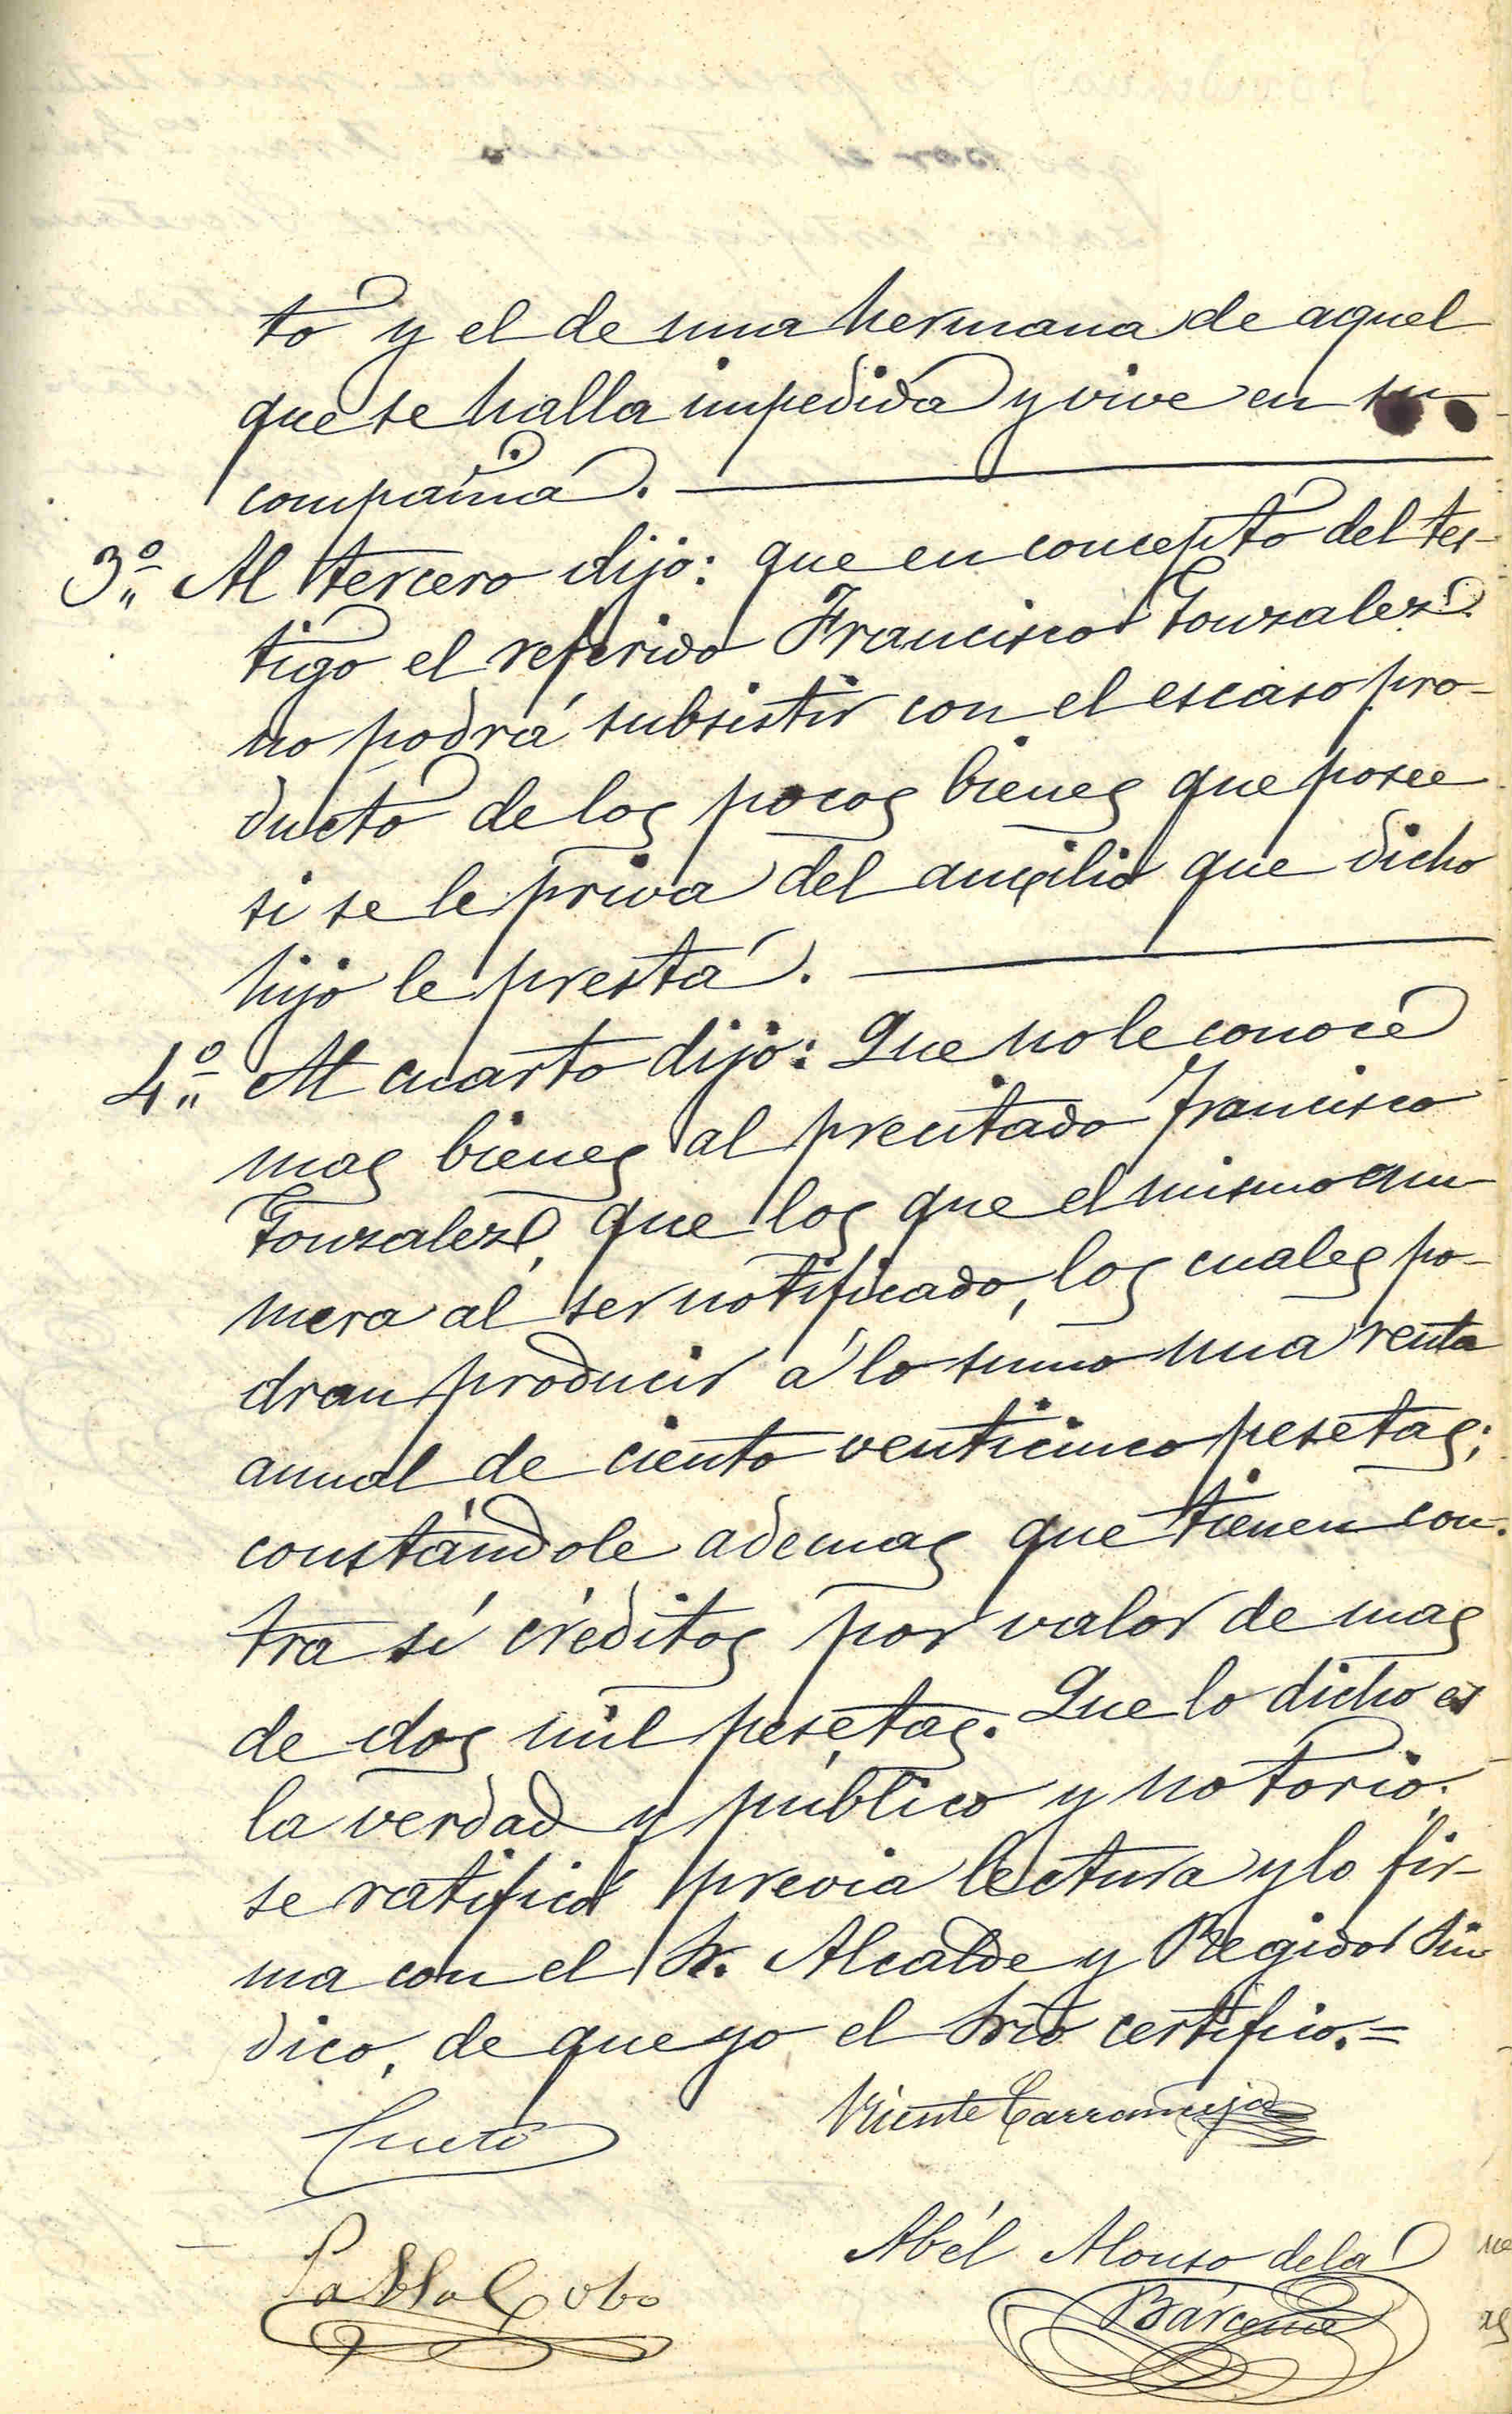 to y el de una hermana de aquel
que se halla impedida y vive en su
compañia.
3º Al tercero dijo: que en concepto del tes-
tigo el referido Francisco Gonzalez
no podrá subsistir con el escaso pro-
ducto de los pocos bienes que posee
si se le priva del auxilio que dicho
hijo le presta.
4º Al cuarto dijo: Que no le conoce
mas bienes al precitado Francisco
Gonzalez, que los que el mismo enu-
mera al ser notificado, los cuales po-
dran producir á lo sumo una renta
anual de ciento venticinco pesetas;
constándole ademas que tienen con-
tra sí créditos por valor de mas
de dos mil pesetas. Que lo dicho es
la verdad y público y notorio.
se ratificó previa lectura y lo fir-
ma con el Sr. Alcalde y Regidor Sin
dico, de que yo el Srio certifico.=
Cueto
Vicente Carramuja
Pablo Cobo
Abél Alonso de la
Bárcena